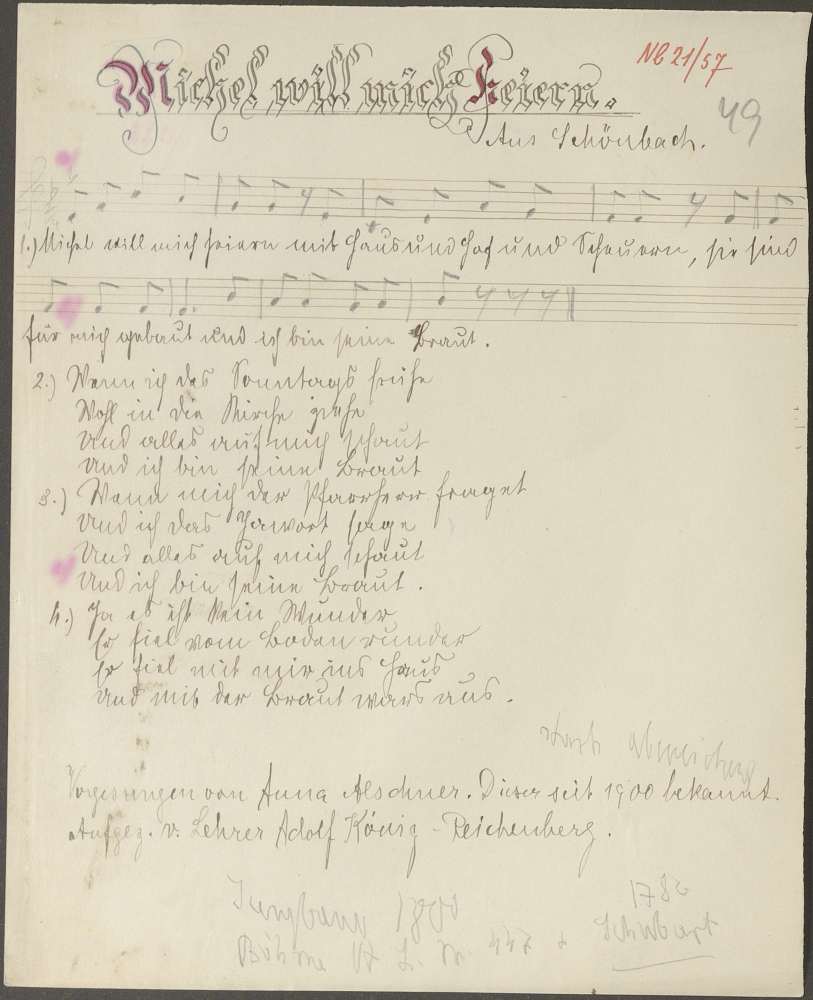 Michel will mich feiern.
NB 21/57
49
Aus Schönbach.
1.) Michel will mich feiern mit Haus und Hof und Scheuern, sie sind
für mich gebaut und ich bin seine Braut.
2.) Wenn ich des Sonntags frühe
Wohl in die Kirche gehe
Und alles auf mich schaut
Und ich bin seine Braut
3.) Wenn mich der Pfarrherr fraget
Und ich das Jawort sage
Und alles auf mich schaut
Und ich bin seine Braut.
4.) Ja es ist kein Wunder
Er fiel vom Boden runder
Er fiel mit mir ins Haus
Und mit der Braut wars aus.
stark abweichend
Vorgesungen von Anna Alschner. Dieser seit 1900 bekannt.
Aufgez. v. Lehrer Adolf König - Reichenberg.
Jungbauer 1800
1786
Böhme V. L. Nr. 447 + Schubart